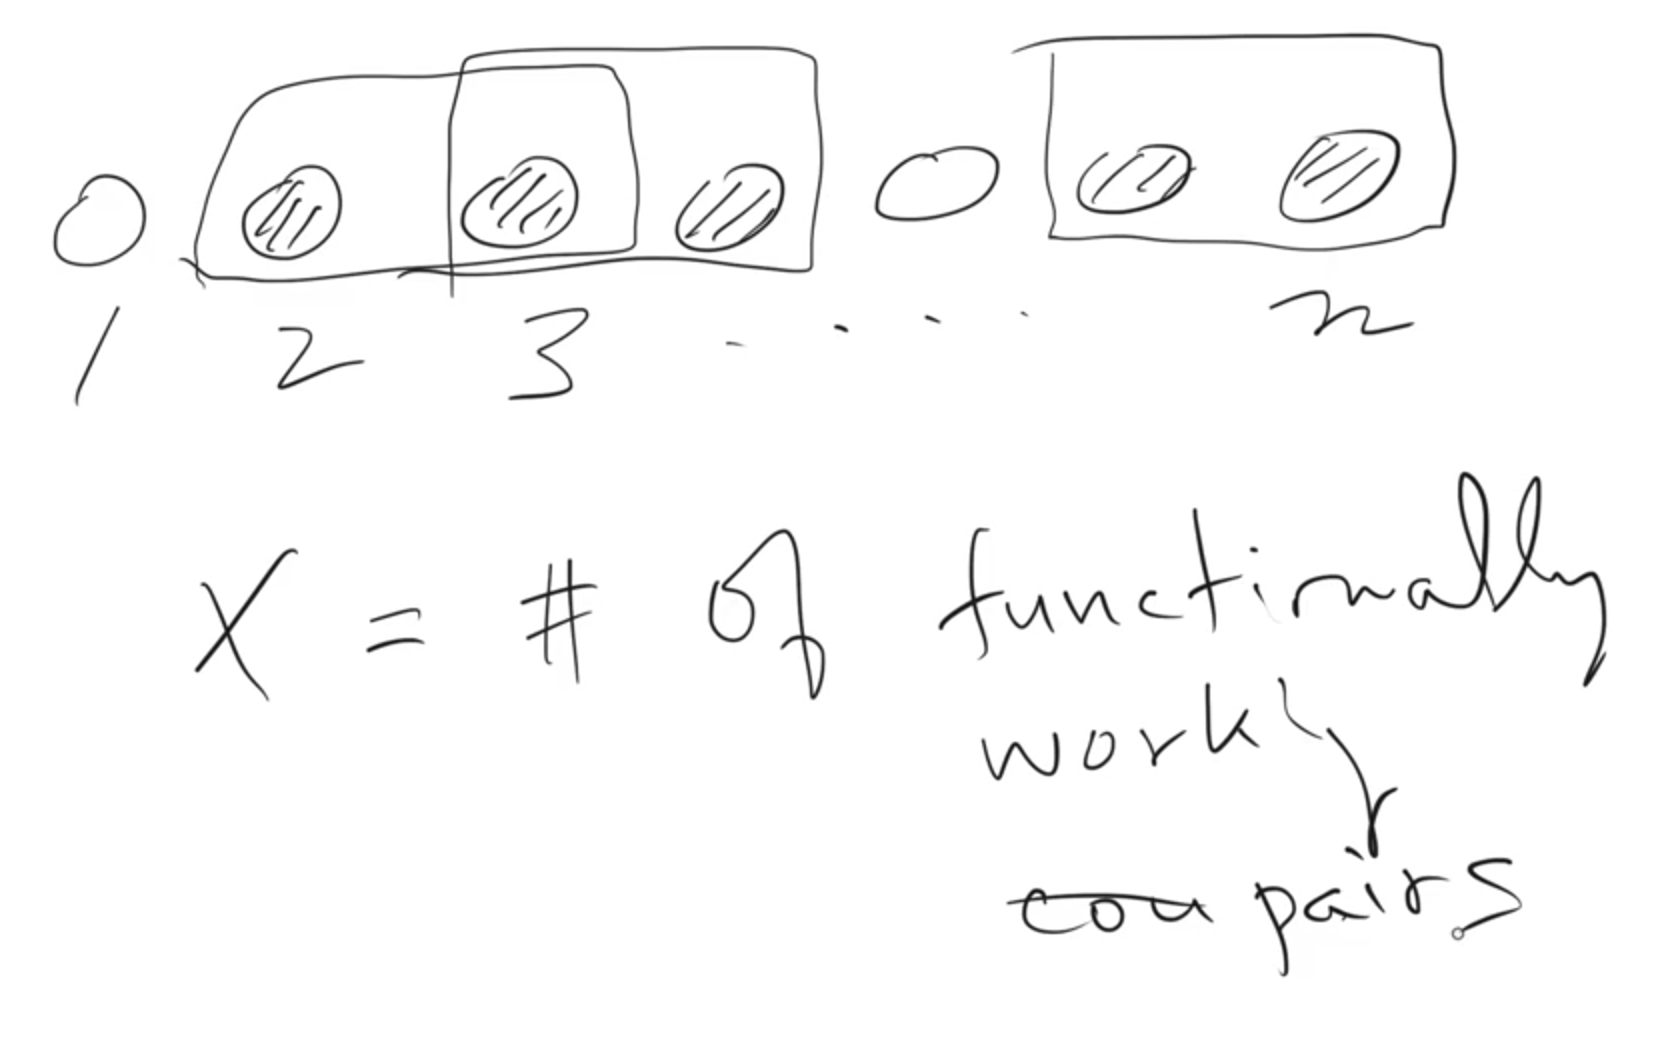 1 2 3 - . . . n
X = # of functionally
working
pairs